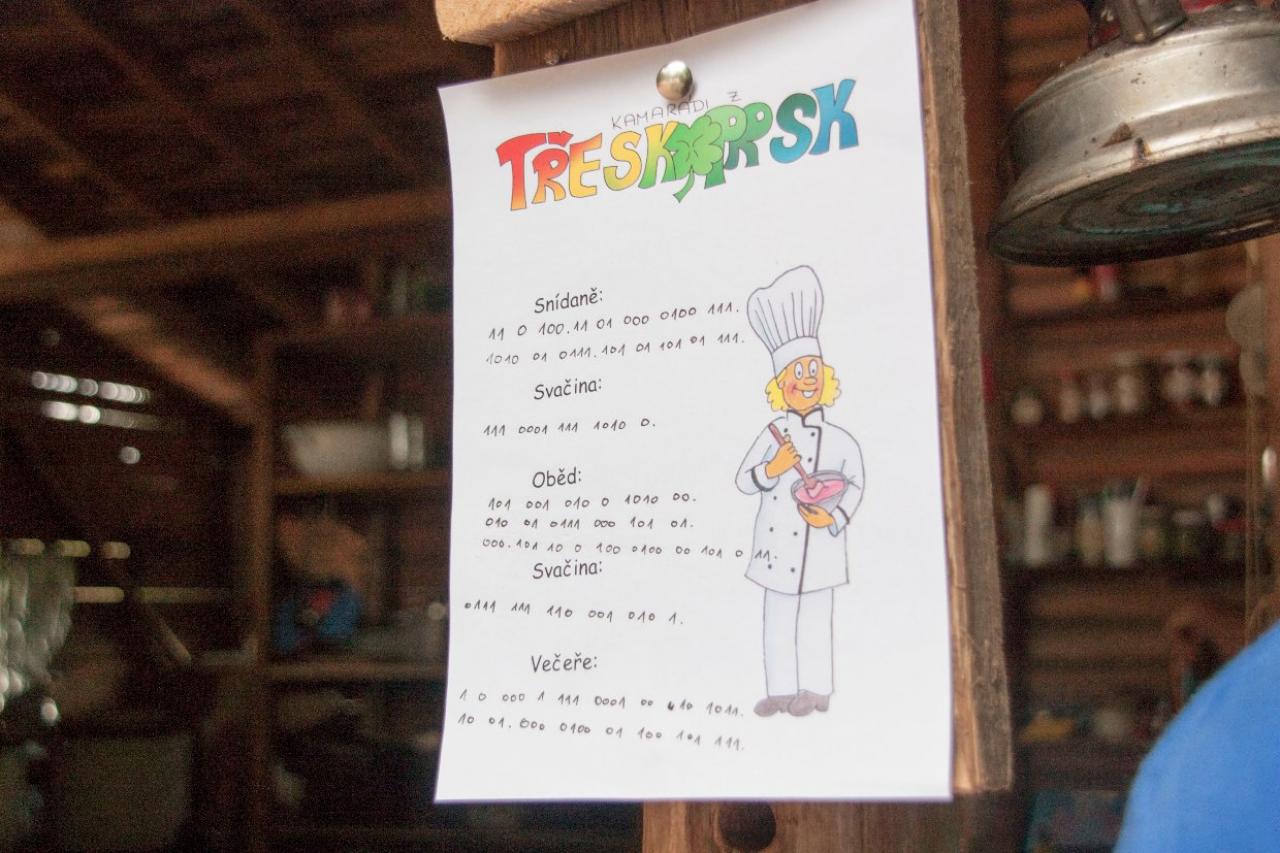 KAMARÁDI Z
TŘESKOPRSK
Snídaně:
11 0 100.11 01 000 0100 111.
1010 01 0111.101 01 101 01 111.
Svačina:
111 0001 111 1010 0.
Oběd:
101 001 010 0 1010 00.
010 01 0111 000 101 01.
000.101 10 0 100 0100 00 101 0 11.
Svačina:
0111 111 110 001 010 1.
Večeře:
1 0 000 1 111 0001 00 010 1011.
10 01.000 0100 01 100 101 111.